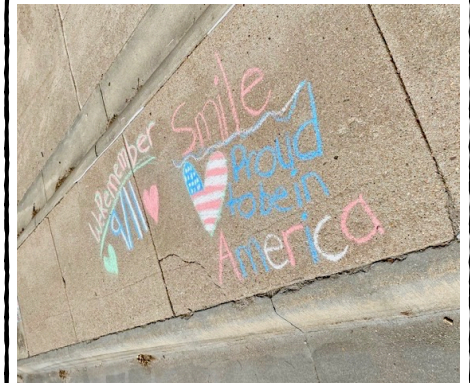 We Remember
9/11
Smile
Proud
to be in
America